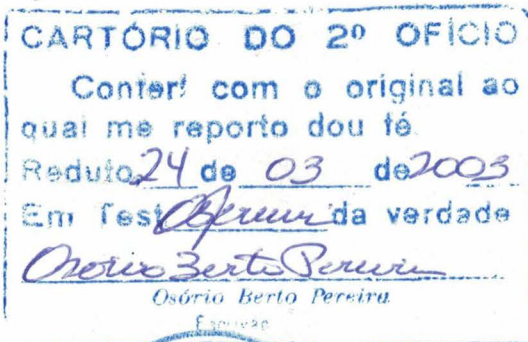 CARTÓRIO DO 2º OFÍCIO
Conferi com o original ao
qual me reporto dou fé.
Reduto 24 de 03 de 2003
Em Test da verdade
Osório Berto Pereira
Osório Berto Pereira
Escrivão